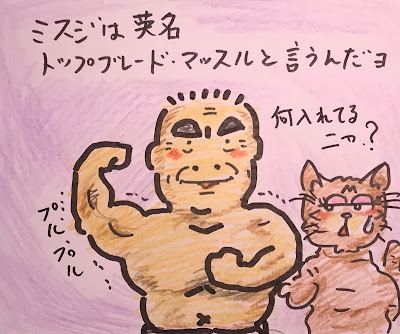 ミスジは英名
トップブレード・マッスルと言うんだヨ
何入れてる
ニャ?
プル
プル